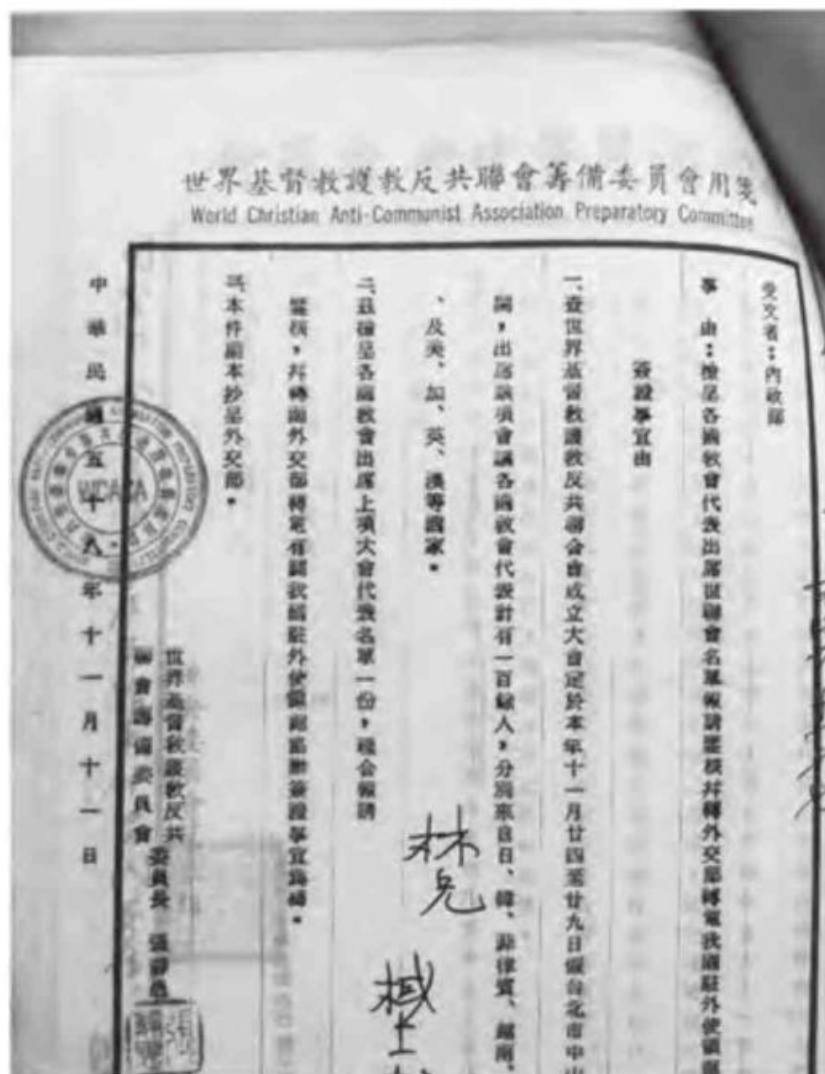 世界基督教護教反共聯會籌備委員會用箋
World Christian Anti-Communist Association Preparatory Committee
受文者：內政部
事 由：檢呈各國教會代表出席世聯會名單報請鑒核并轉外交部轉電我國駐外使領
簽證事宜由
一、查世界基督教護教反共聯合會成立大會定於本年十一月廿四至廿九日假台北市中山
，出席該項會議各國教會代表計有一百餘人，分別來自日、韓、菲律賓、越南、
、及美、加、英、澳等國家。
二、茲檢呈各國教會出席上項大會代表名單一份，備會報請
鑒核，并轉商外交部轉電有關我國駐外使領商協辦簽證事宜為禱。
三、本件副本抄呈外交部。
世界基督教護教反共
聯會籌備委員會
委員長 張
中華民國五十八年十一月十一日
WCACA